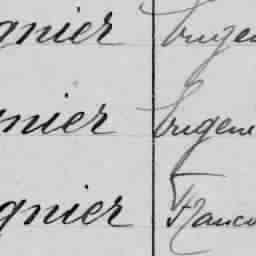 gnier Eugen
nier Eugene
gnier Franco